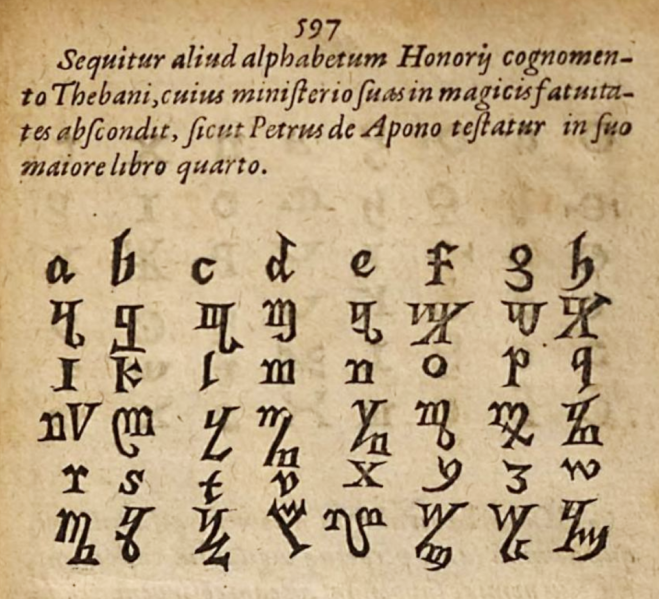 597
Sequitur aliud alphabetum Honorij cognomen-
to Thebani, cuius ministerio suas in magicis fatuita-
tes abscondit, sicut Petrus de Apono testatur in suo
maiore libro quarto.
a b c d e f g h
I k l m n o p q
r s t v x y z w